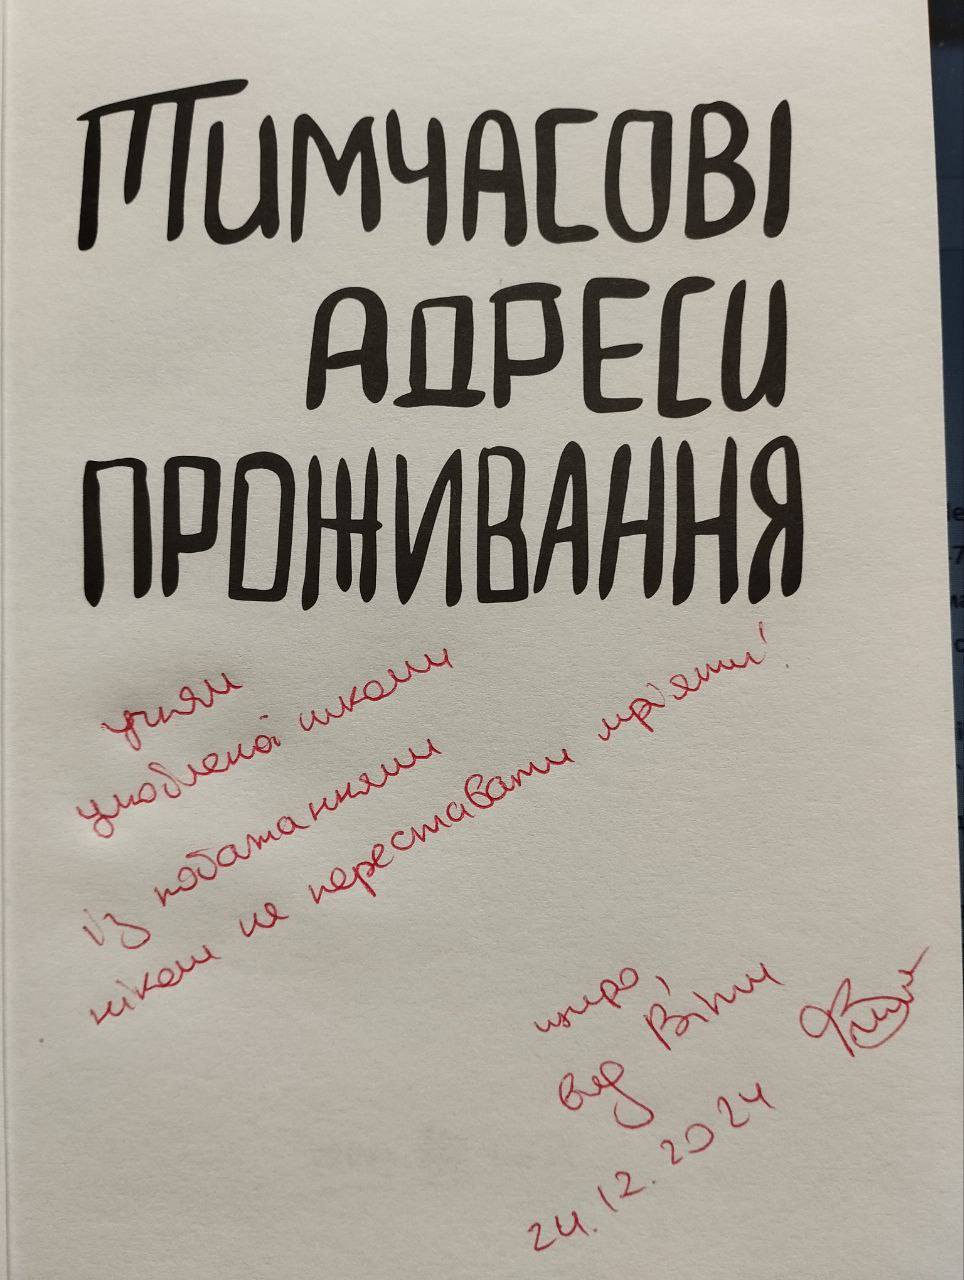 ТИМЧАСОВІ
АДРЕСИ
ПРОЖИВАННЯ
учням
улюбленої школи
із побажаннями
ніколи не переставати мріяти!
щиро,
від Віти
24.12.2024